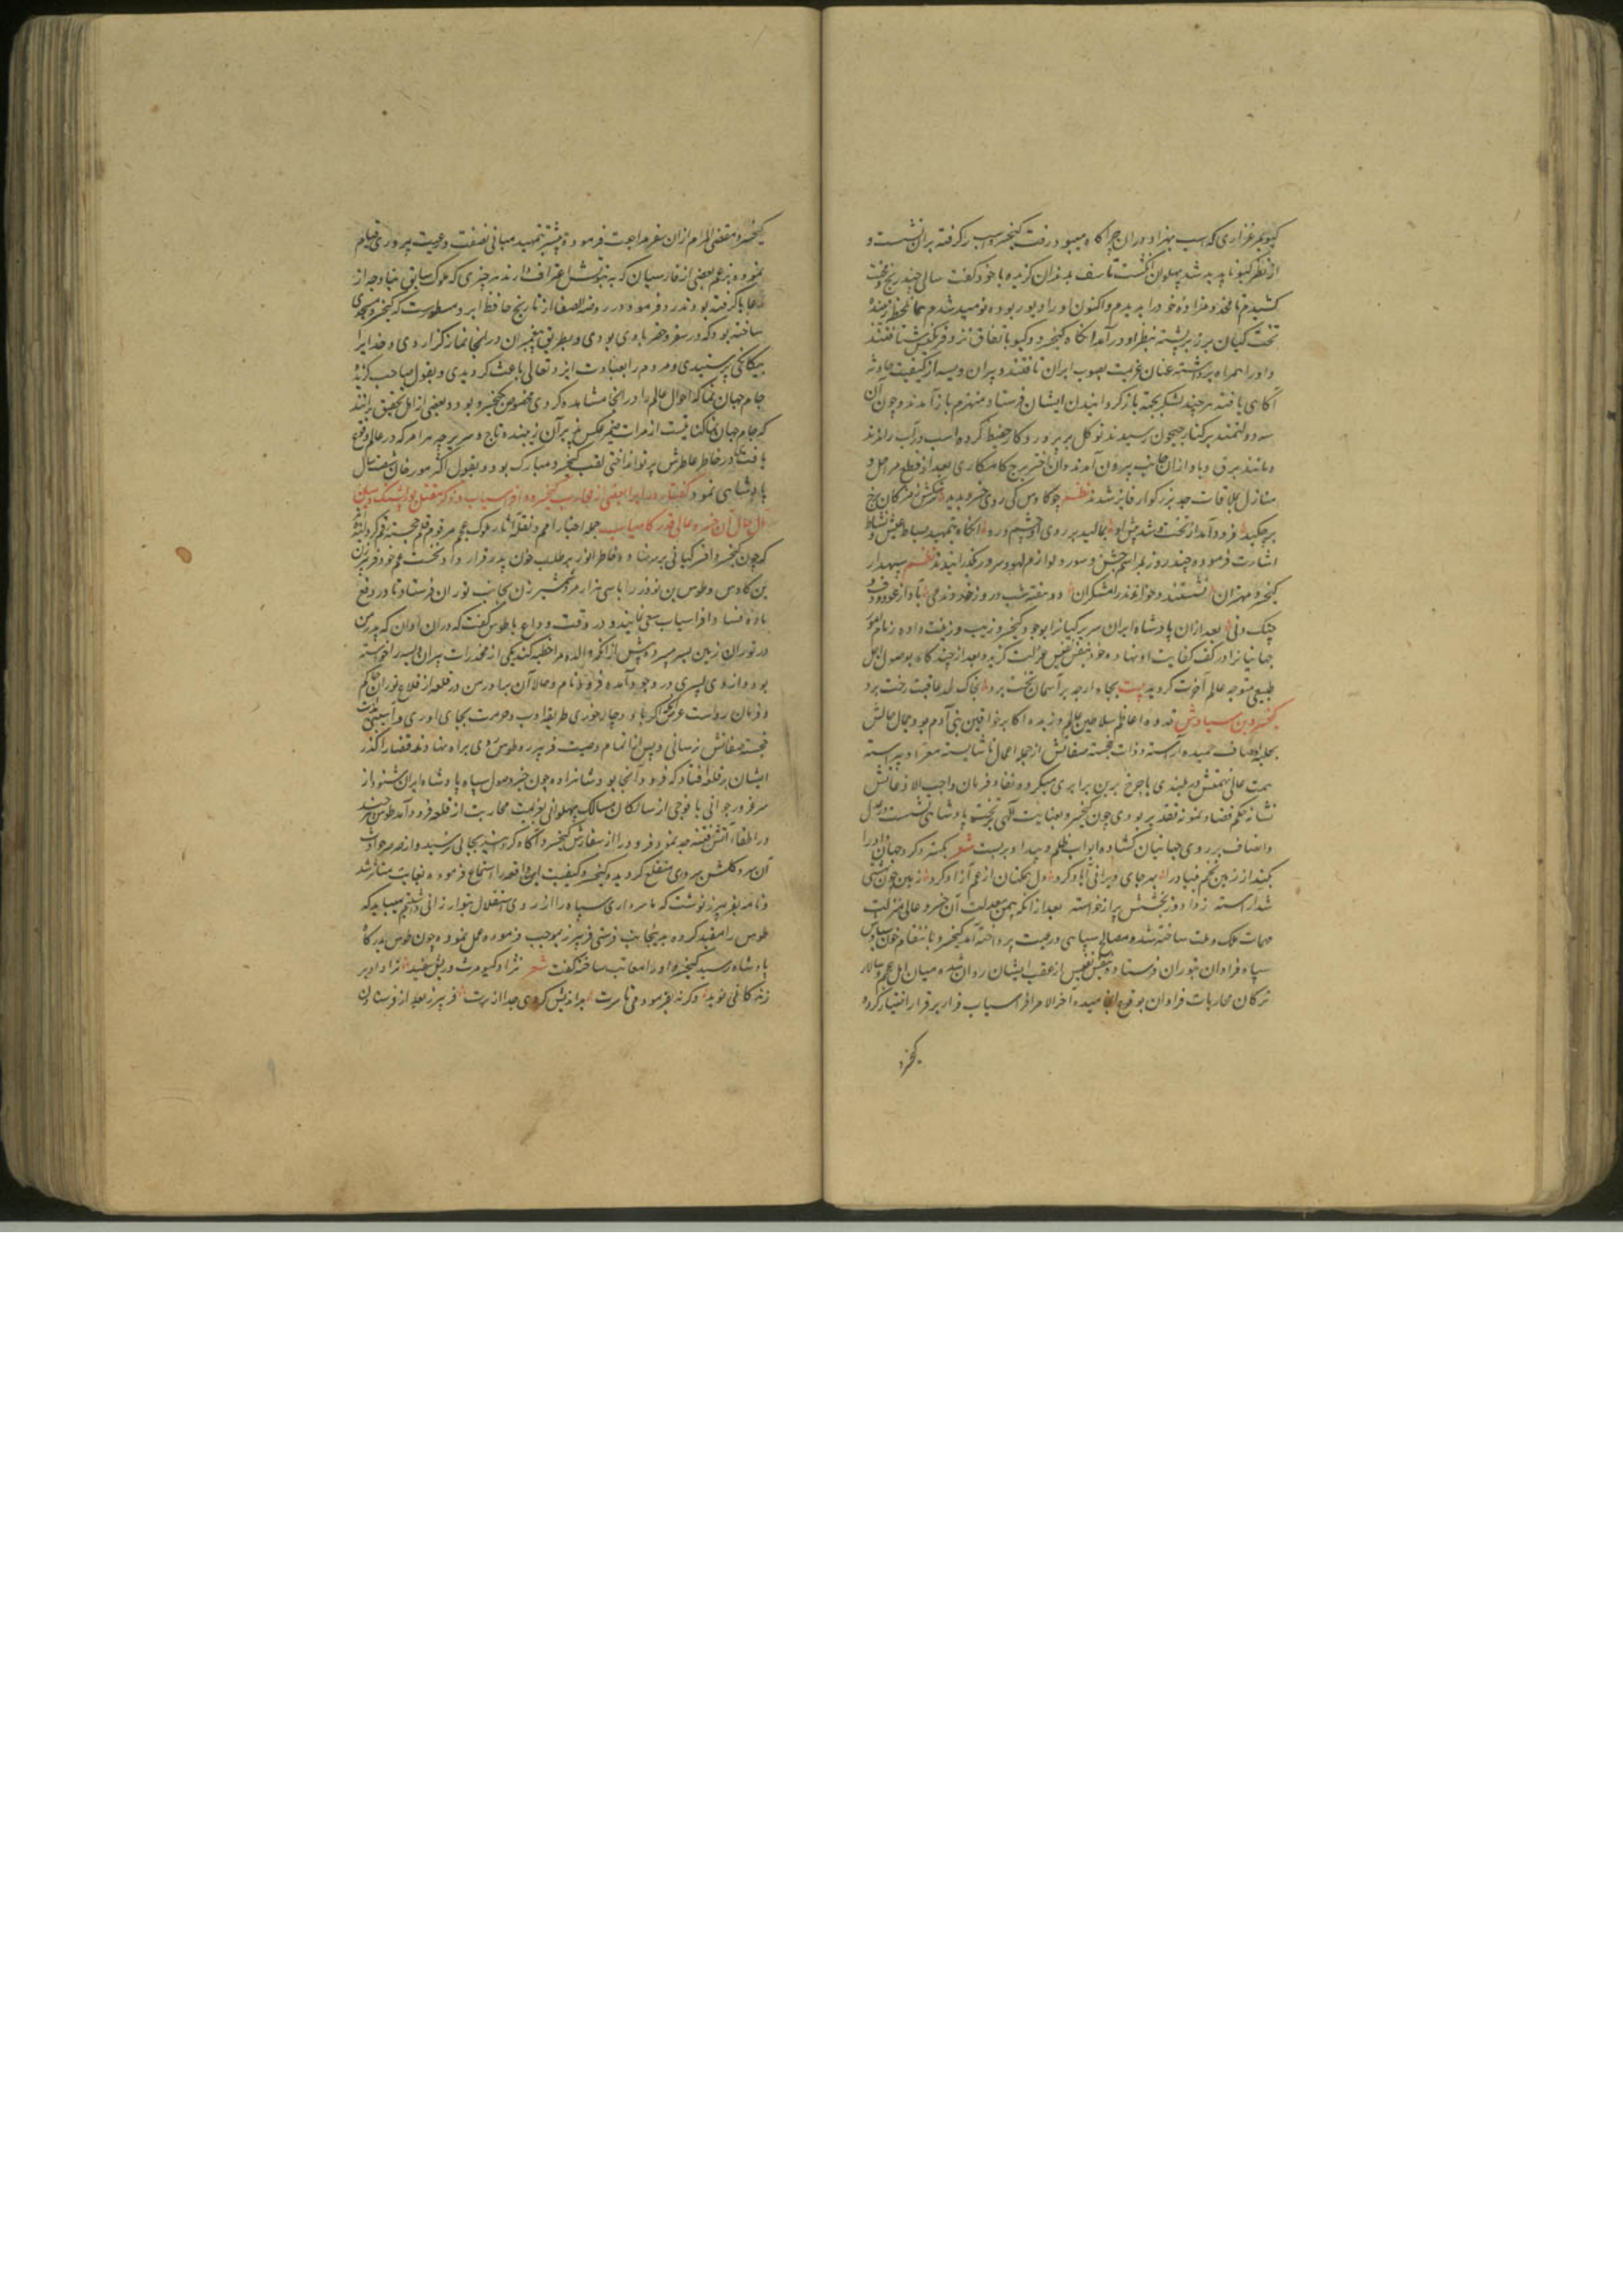 کیو بمرغزاری که اسب بهزاد در ان چراگاه میبود رفت کیخسرو اسب را گرفته بران نشست و
از نظر کیو ناپدید شد پهلوان انکشت تاسف بدندان گزیده با خود گفت سالی چند رنج و محنت
کشیدم تا مخدوم زاده خود را بدیدم و اکنون او را دیو ربوده نومید شدم همان لحظه
تخت کیان بر زبر پشته بنظر او درآمد انگاه کیخسرو و کیو باتفاق نزد فرنکیس شتافتند
و او را همراه برداشته عنان عزیمت بصوب ایران تافتند و پیران ویسه از کیفیت حادثه
آگاهی یافته هر چند لشکر بجهت باز گردانیدن ایشان فرستاد منهزم باز آمدند و چون آن
سه دولتمند بر کنار جیحون رسیدند توکل بر پروردگار حفیظ کرده اسب در آب راندند
و مانند برق و باد از ان جانب بیرون آمدند و ان اختر برج کامکاری بعد از قطع مراحل و
منازل بملاقات جد بزرکوار فایز شدند نظم چو کاوس کی روی خسرو بدید سرشکش ز مژگان برخ
بر چکید فرود آمد از تخت و شد پیش او بمالید بر روی او چشم و رو انگاه بتمهید بساط عیش و نشاط
اشارت فرموده چند روز بمراسم جشن و سور و لوازم لهو و سرور بگذرانیدند نظم سپهدار
کیخسرو و مهتران نشستند و خواندند رامشکران دو هفته شب و روز خوردند می بآواز عود و دف و
چنک و نی بعد از ان پادشاه ایران سریر کیانرا بوجود کیخسرو زیب و زینت داده زمام امور
جهانیانرا در کف کفایت او نهاد و خود بنفس نفیس عزلت گزید و بعد از چند گاه بوصول اجل
طبیعی متوجه عالم آخرت کردید بیت بجاه ارچه بر آسمان تخت برد بخاک لحد عاقبت رخت برد
کیخسرو بن سیاوش قدوه اعاظم سلاطین عالم و زبده اکابر خواقین بنی آدم بود جمال حالش
بحلیه اوصاف حمیده آراسته و ذات خجسته صفاتش از جمله اعمال ناشایسته معرا و پیراسته
همت عالی نهمتش در بلندی با چرخ برین برابری میکرد و نفاذ فرمان واجب الاذعانش
نشان حکم قضا و نمونه تقدیر بودی چون کیخسرو بعنایت الهی بر تخت پادشاهی نشست در عدل
و انصاف بر روی جهانیان کشاده ابواب ظلم و بیداد بربست شعر بکسترد کرد جهان داد را
بکند از زمین تخم بیداد را بهر جای ویرانی آباد کرد دل غمکنان از غم آزاد کرد زمین چون بهشتی
شد آراسته ز داد و ز بخشش پر از خواسته بعد از انکه بیمن معدلت آن خسرو عالی منزلت
مهمات ملک و ملت ساخته شد و مصالح سپاهی و رعیت پرداخته آمد کیخسرو بانتقام خون سیاوش
سپاه فراوان بتوران فرستاده بنفس نفیس از عقب ایشان روان شد و میان اهل عجم و سالار
ترکان محاربات فراوان بوقوع انجامیده آخر الامر افراسیاب فرار بر قرار اختیار کرده
کیخسرو
کیخسرو مقضی المرام از ان سفر مراجعت فرموده بیشتر بتمهید مبانی نصفت و رعیت پروری قیام
نموده بزعم بعضی از فارسیان که به نبوتش اعتراف دارند هر چیزی که ملوک سابق بناوجه از
رعایا گرفته بودند رد فرمود و در روضه الصفا از تاریخ حافظ ابرو مسطورست که کیخسرو مسجدی
ساخته بود که در سفر و حضر با وی بودی و بطریق پیغمبران در انجا نماز گزاردی و خدایرا
بیگانگی پرستیدی و مردم را بعبادت ایزد تعالی باعث کردیدی و بقول صاحب گزیده
جام جهان نما که احوال عالم را در انجا مشاهده کردی مخصوص کیخسرو بود و بعضی از اهل تحقیق برانند
که جام جهان نما کنایتست از مرات ضمیر عکس پذیر آن زیبنده تاج و سریر چه هر امر که در عالم وقوع
یافت در خاطر عاطرش پرتو انداختی لقب کیخسرو مبارک بود و بقول اکثر مورخان شصت سال
پادشاهی نمود گفتار در ایراد بعضی از محاربات کیخسرو و افراسیاب و ذکر مقتل پور پشنک و بیان
مآل حال آن خسرو عالی قدر کامیاب جمله اخبار امم و نقله آثار ملوک عجم مرقوم قلم خجسته رقم گردانیده اند
که چون کیخسرو افسر کیانی بر سر نهاد و خاطر انور بر طلب خون پدر قرار داد نخست عم خود فریبرز
بن کاوس و طوس بن نوذر را با سی هزار مرد شمشیر زن بجانب توران فرستاد تا در رفع
ماده فساد افراسیاب سعی نمایند و در وقت وداع با طوس گفت که در ان اوان که پدر من
در توران زمین بسر میبرد پیش از انکه والده مرا خطبه کند یکی از مخدرات پیران ویسه را خواسته
بود و از وی پسری در وجود آمده فرود نام و حالا آن برادر من در قلعه از قلاع توران حاکم
خجسته صفاتش نرسانی و پس از اتمام وصیت فریبرز و طوس روی براه نهادند قضا را گذر
ایشان بر قلعه افتاد که فرود در آنجا بود و شاهزاده چون خبر وصول سپاه پادشاه ایران شنود از
سر غرور جوانی با فوجی از سالکان مسالک پهلوانی بعزیمت محاربت از قلعه فرود آمد طوس هر چند
در اطفاء آتش فتنه جهد نمود فرود را از سفارش کیخسرو آگاه کردانید بجائی نرسید و از صرصر حوادث
آن سرو گلشن سروری منقلع کردید و کیخسرو کیفیت این واقعه را استماع فرموده بغایت متاثر شد
و نامه بفریبرز نوشت که ما سرداری سپاه را از روی استقلال بتو ارزانی داشتیم میباید که
طوس را مقید کرده بدینجانب فرستی فریبرز بموجب فرموده عمل نمود و چون طوس بدرگاه
پادشاه رسید کیخسرو او را معاتب ساخته گفت شعر نژاد منوچهر و ریش سفید ترا داد بر
زندگانی نوید و گرنه بفرمودمی تا سرت بداندیش کردی جدا از برت فریبرز بعد از فرستادن